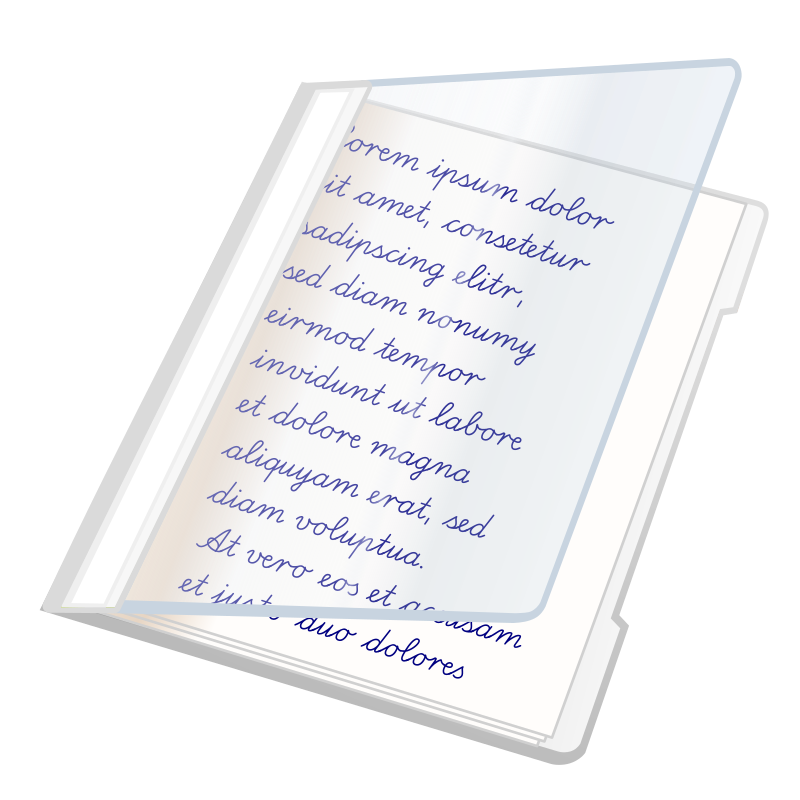 Lorem ipsum dolor
it amet, consetetur
sadipscing elitr,
sed diam nonumy
eirmod tempor
invidunt ut labore
et dolore magna
aliquyam erat, sed
diam voluptua.
At vero eos et accusam
et justo duo dolores